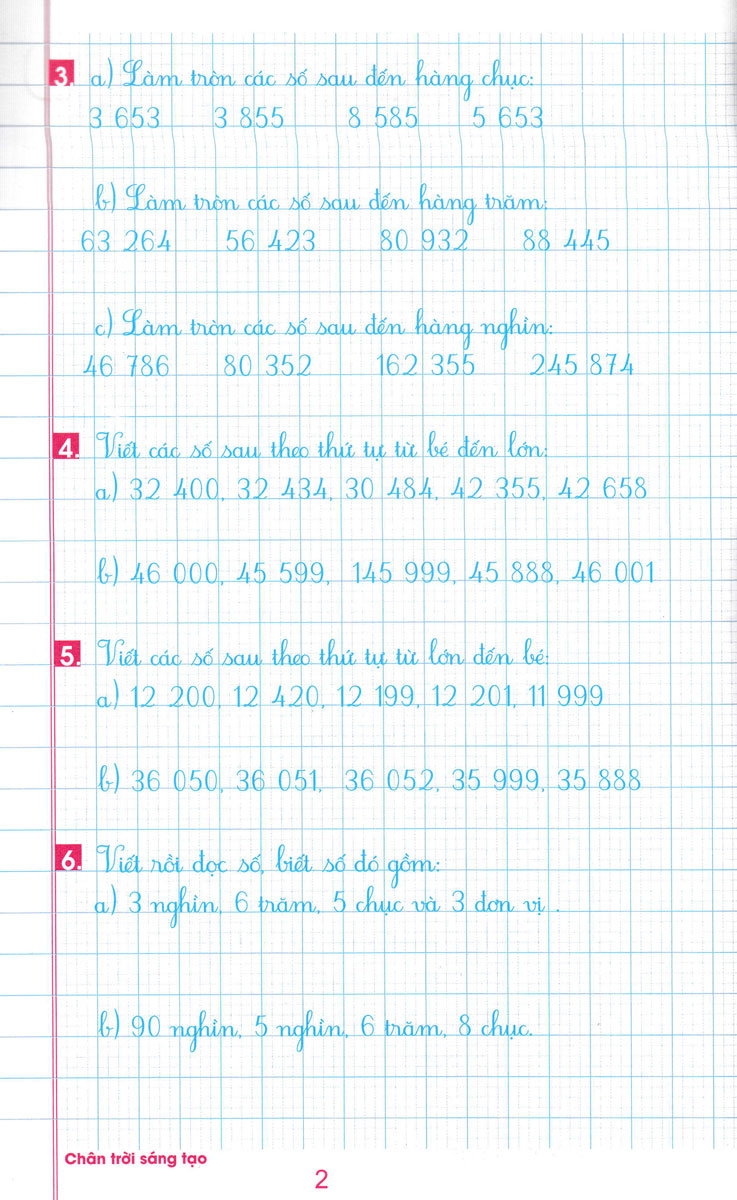 3. a) Làm tròn các số sau đến hàng chục:
3 653 3 855 8 585 5 653
b) Làm tròn các số sau đến hàng trăm:
63 264 56 423 80 932 88 445
c) Làm tròn các số sau đến hàng nghìn:
46 786 80 352 162 355 245 874
4. Viết các số sau theo thứ tự từ bé đến lớn:
a) 32 400, 32 434, 30 484, 42 355, 42 658
b) 46 000, 45 599, 145 999, 45 888, 46 001
5. Viết các số sau theo thứ tự từ lớn đến bé:
a) 12 200, 12 420, 12 199, 12 201, 11 999
b) 36 050, 36 051, 36 052, 35 999, 35 888
6. Viết rồi đọc số, biết số đó gồm:
a) 3 nghìn, 6 trăm, 5 chục và 3 đơn vị .
b) 90 nghìn, 5 nghìn, 6 trăm, 8 chục.
Chân trời sáng tạo
2